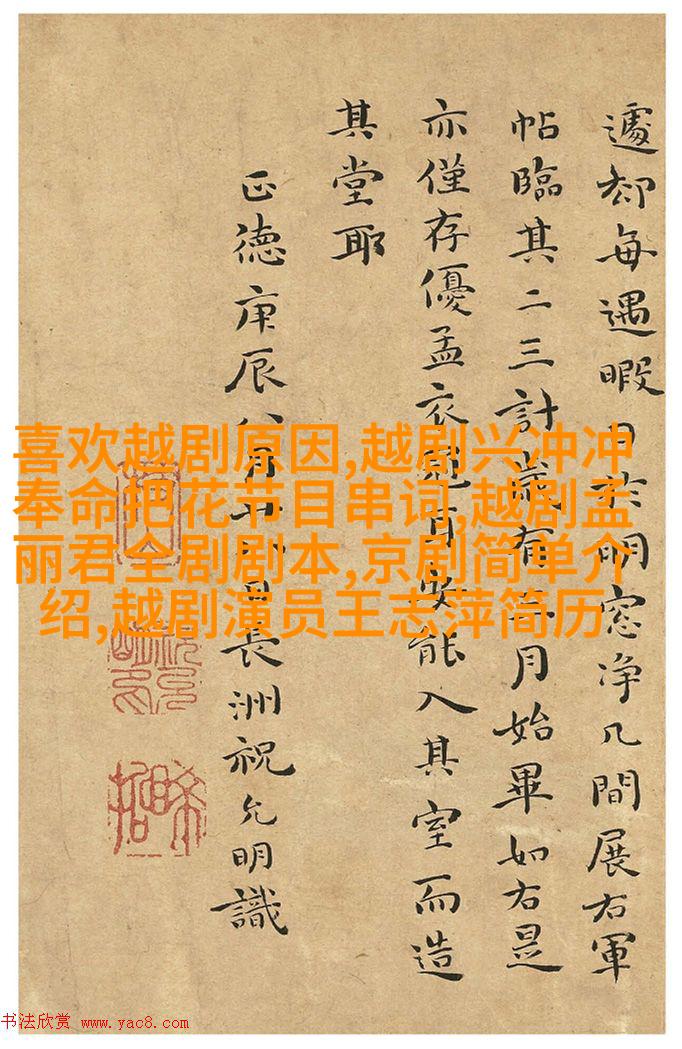 遽却每遇暇日於明窓净几間展右軍
帖臨其二三計歲有月始畢如右是
亦僅存優孟衣冠安能入其室而造
其堂耶
正德庚辰八月廿日長洲祝允明識
喜欢越剧原因,越剧兴冲冲
奉命把花节目串词,越剧孟
丽君全剧剧本,京剧简单介
绍,越剧演员王志萍简历
书法欣赏 www.yac8.com